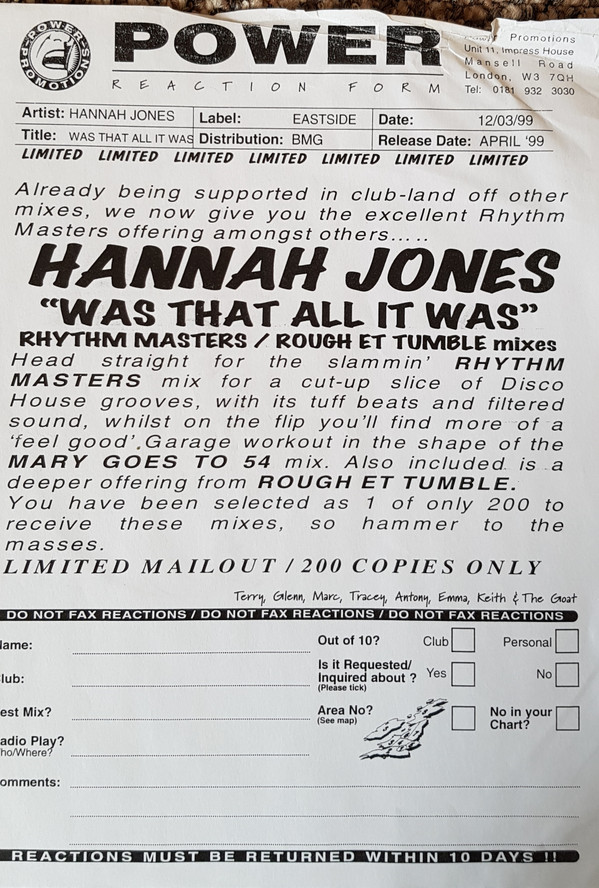 POWER PROMOTIONS
POWER
REACTION FORM
Promotions
Unit 11, Impress House
Mansell Road
London, W3 7QH
Tel: 0181 932 3030
Artist: HANNAH JONES Label: EASTSIDE Date: 12/03/99
Title: WAS THAT ALL IT WAS Distribution: BMG Release Date: APRIL '99
LIMITED LIMITED LIMITED LIMITED LIMITED LIMITED LIMITED
Already being supported in club-land off other
mixes, we now give you the excellent Rhythm
Masters offering amongst others.....
HANNAH JONES
“WAS THAT ALL IT WAS”
RHYTHM MASTERS / ROUGH ET TUMBLE mixes
Head straight for the slammin' RHYTHM
MASTERS mix for a cut-up slice of Disco
House grooves, with its tuff beats and filtered
sound, whilst on the flip you'll find more of a
'feel good', Garage workout in the shape of the
MARY GOES TO 54 mix. Also included is a
deeper offering from ROUGH ET TUMBLE.
You have been selected as 1 of only 200 to
receive these mixes, so hammer to the
masses.
LIMITED MAILOUT / 200 COPIES ONLY
Terry, Glenn, Marc, Tracey, Antony, Emma, Keith & The Goat
DO NOT FAX REACTIONS / DO NOT FAX REACTIONS / DO NOT FAX REACTIONS
ame: Out of 10? Club Personal
lub: Is it Requested/
Inquired about ? Yes No
(Please tick)
est Mix? Area No? No in your
(See map) Chart?
adio Play?
ho/Where?
omments:
REACTIONS MUST BE RETURNED WITHIN 10 DAYS !!